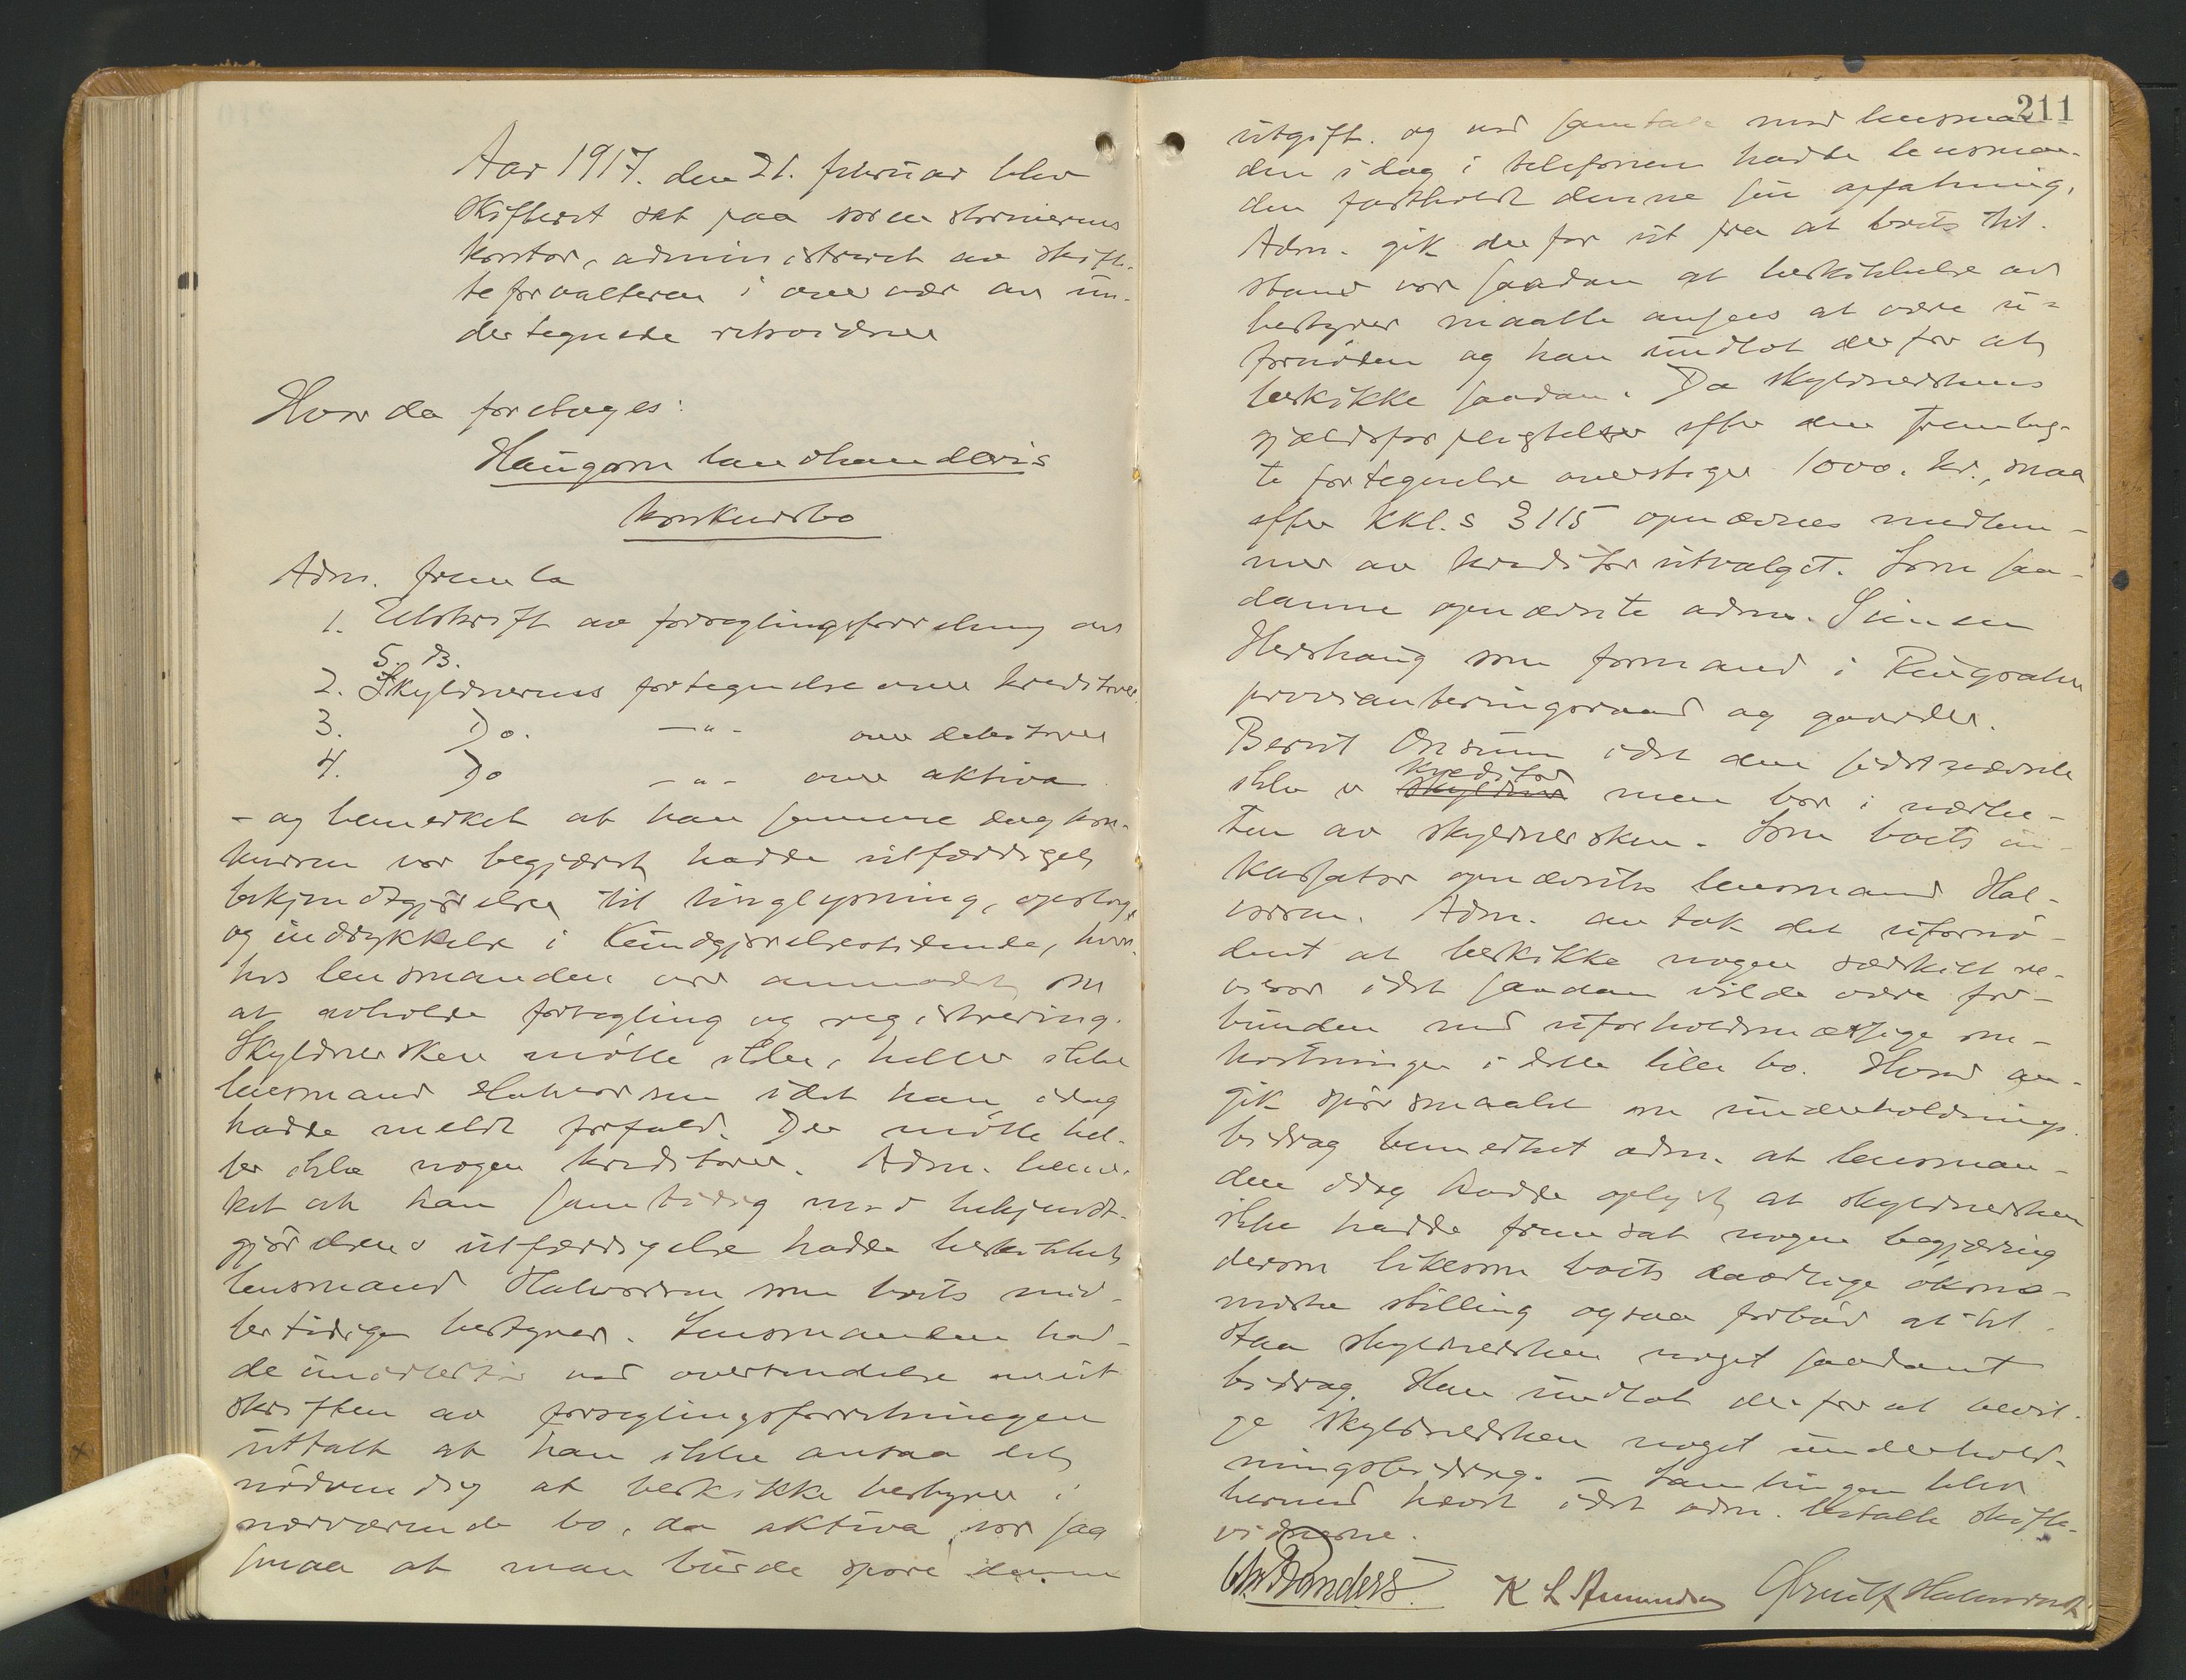 Aar 1917. den 21. februar blev
skifteret sat paa sorenskriverens
kontor, administreret av skift-
teforvalteren i overvær av un-
dertegnede retsvidner
Hvor da foretages:
Haugom landhandleris
konkursbo
Adm. fremla
1. Utskrift av forseglingsforretning av
5. ds.
2. Skyldnerens fortegnelse over kreditorer
3. Do. —"— over debitorer
4. Do —"— over aktiva
- og bemerket at han samme dag kon-
kursen var begjært hadde utfærdiget
bekjendtgjørelse til tinglysning, opslag
og indrykkelse i Kundgjørelsestidende, hvor-
hos lensmanden var anmodet om
at avholde forsegling og registrering.
Skyldnersken møtte ikke, heller ikke
lensmand Halvorsen idet han idag
hadde meldt forfald. Der møtte hel-
ler ikke nogen kreditorer. Adm. bemer-
ket at han samtidig med bekjendt-
gjørelsens utfærdigelse hadde beskikket
lensmand Halvorsen som boets mid-
lertidige bestyrer. Lensmanden had-
de imidlertid ved oversendelse av ut
skriften av forseglingsforretningen
uttalt at han ikke ansaa det
nødvendig at beskikke bestyrer i
nærværende bo, da aktiva var saa
smaa at man burde spare denne
211
utgift. og ved samtale med lensman
den idag i telefonen hadde lensman-
den fastholdt denne sin opfatning.
Adm. gik derfor ut fra at boets til-
stand var saadan at beskikkelse av
bestyrer maatte ansees at være u-
fornøden og han undlot derfor at
beskikke saadan. Da skyldnerskens
gjældsforpligtelser efter den fremlag-
te fortegnelse overstiger 1000. kr., maa
efter Kkl.s § 115 opnævnes medlem-
mer av kreditorutvalget. Som saa-
danne opnævnte adm. Simen
Hershaug som formand i Ringsaker
provianteringsraad og gaardbr.
Bernt Onsum idet den sidstnævnte
ikke er skyldner kreditor men bor i nærhe-
ten av skyldnersken. Som boets in-
kassator opnævntes lensmand Hal-
vorsen. Adm. antok det ufornø-
dent at beskikke nogen særskilt re-
visor idet saadan vilde være for-
bunden med uforholdsmæssige om-
kostninger i dette lille bo. Hvad an-
gik spørsmaalet om underholdnings-
bidrag bemerket adm. at lensman-
den idag hadde oplyst at skyldnersken
ikke hadde fremsat nogen begjæring
derom likesom boets daarlige økono-
miske stilling ogsaa forbød at til-
staa skyldnersken noget saadant
bidrag. Han undlot derfor at bevil-
ge skyldnersken noget underhold-
ningsbidrag. — Samlingen blev
hermed hævet idet adm. betalte skifte-
vidnerne.
Chr Randers. K L Amundsen